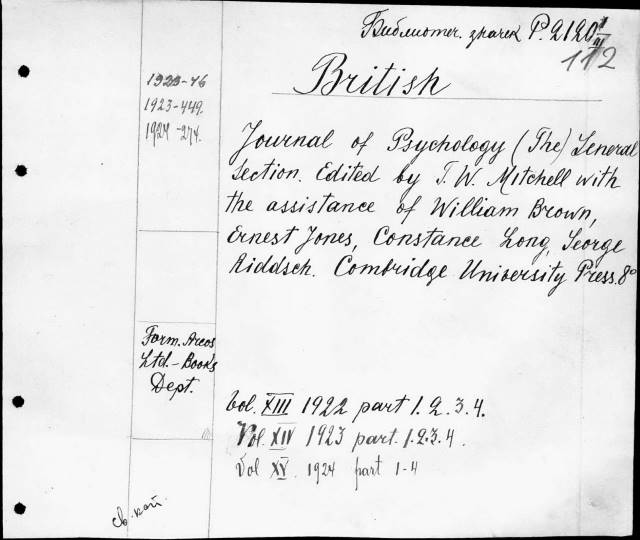 Библиотеч. значек P. 2120
112
British
1923-76
1923-449.
1924-274.
Journal of Psychology (The) General
Section. Edited by T. W. Mitchell with
the assistance of William Brown,
Ernest Jones, Constance Long, George
Riddsch. Combridge University Press. 8°
Form. Arcos
Ltd. - Books
Dept.
Vol. XIII 1922 part 1. 2. 3. 4.
Vol. XIV 1923 part. 1.2.3.4.
Vol XV. 1924 part 1-4
св. кат.